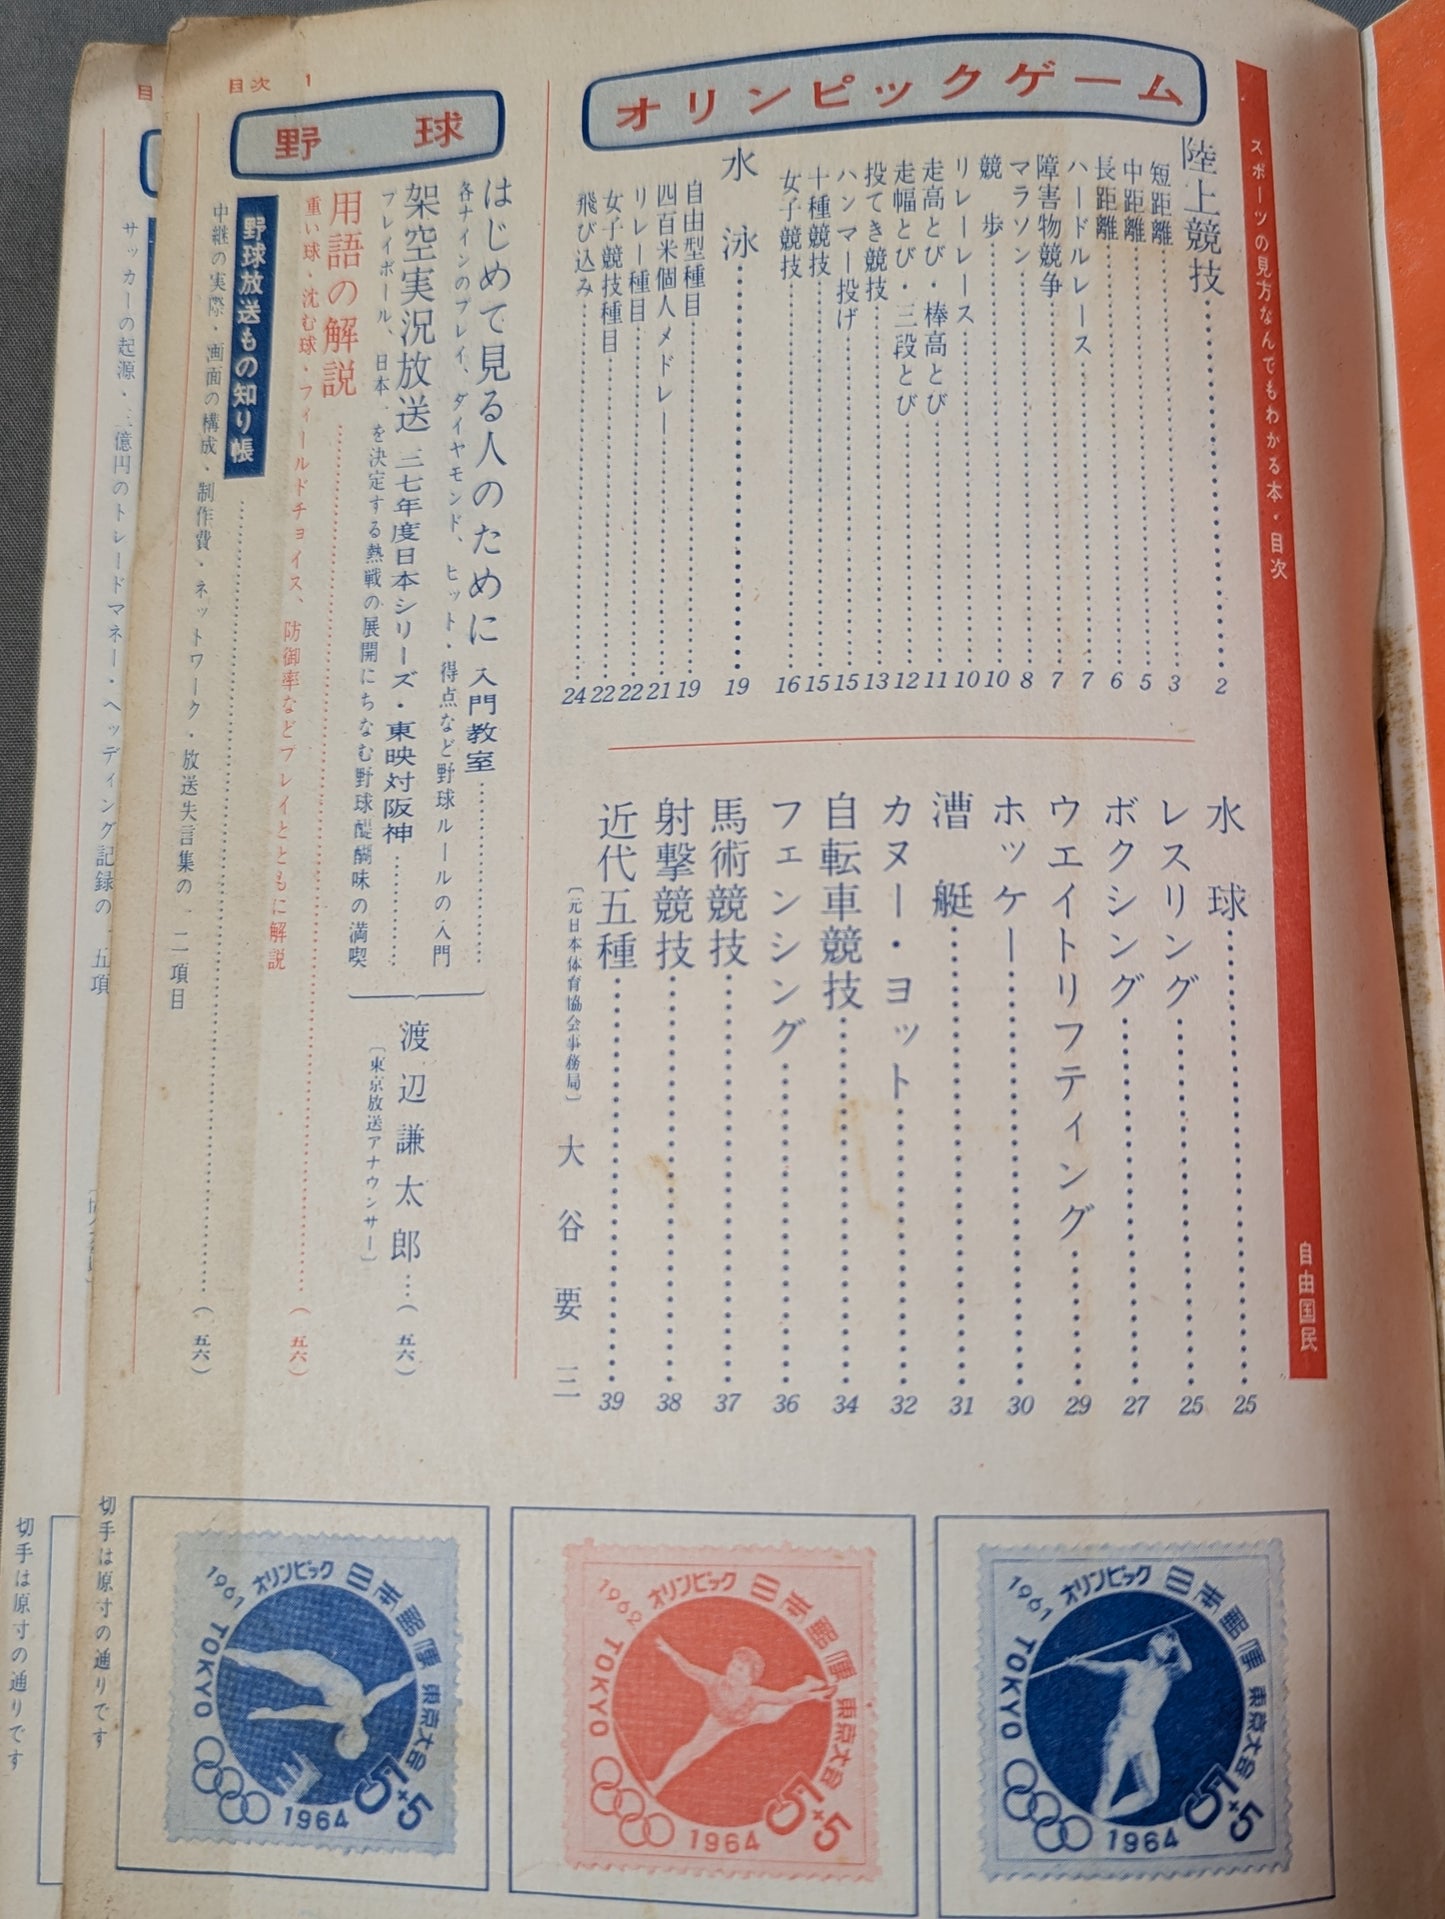 スポーツの見方なんでもわかる本・目次
自由国民
オリンピックゲーム
陸上競技 2
短距離 3
中距離 5
長距離 6
ハードルレース 7
障害物競争 7
マラソン 8
競歩 10
リレーレース 10
走高とび・棒高とび 11
走幅とび・三段とび 12
投てき競技 13
ハンマー投げ 15
十種競技 15
女子競技 16
水泳 19
自由型種目 19
四百米個人メドレー 21
リレー種目 22
女子競技種目 22
飛び込み 24
水球 25
レスリング 25
ボクシング 27
ウエイトリフティング 29
ホッケー 30
漕艇 31
カヌー・ヨット 32
自転車競技 34
フェンシング 36
馬術競技 37
射撃競技 38
近代五種 39
〔元日本体育協会事務局〕 大谷要三
目次 1
野球
はじめて見る人のために 入門教室
各ナインのプレイ、ダイヤモンド、ヒット・得点など野球ルールの入門
架空実況放送 三七年度日本シリーズ・東映対阪神
プレイボール、日本一を決定する熱戦の展開にちなむ野球醍醐味の満喫
渡辺謙太郎 (五六)
〔東京放送アナウンサー〕
用語の解説 (五六)
重い球・沈む球・フィールドチョイス、防御率などプレイとともに解説
野球放送もの知り帳 (五六)
中継の実際・画面の構成・制作費・ネットワーク・放送失言集の一二項目
目
サッカーの起源・二億円のトレードマネー・ヘッディング記録の一五項
切手は原寸の通りです
切手は原寸の通りです
1961 オリンピック 日本郵便
TOKYO
東京大会
1964
5+5
1962 オリンピック 日本郵便
TOKYO
東京大会
1964
5+5
1961 オリンピック 日本郵便
TOKYO
東京大会
1964
5+5